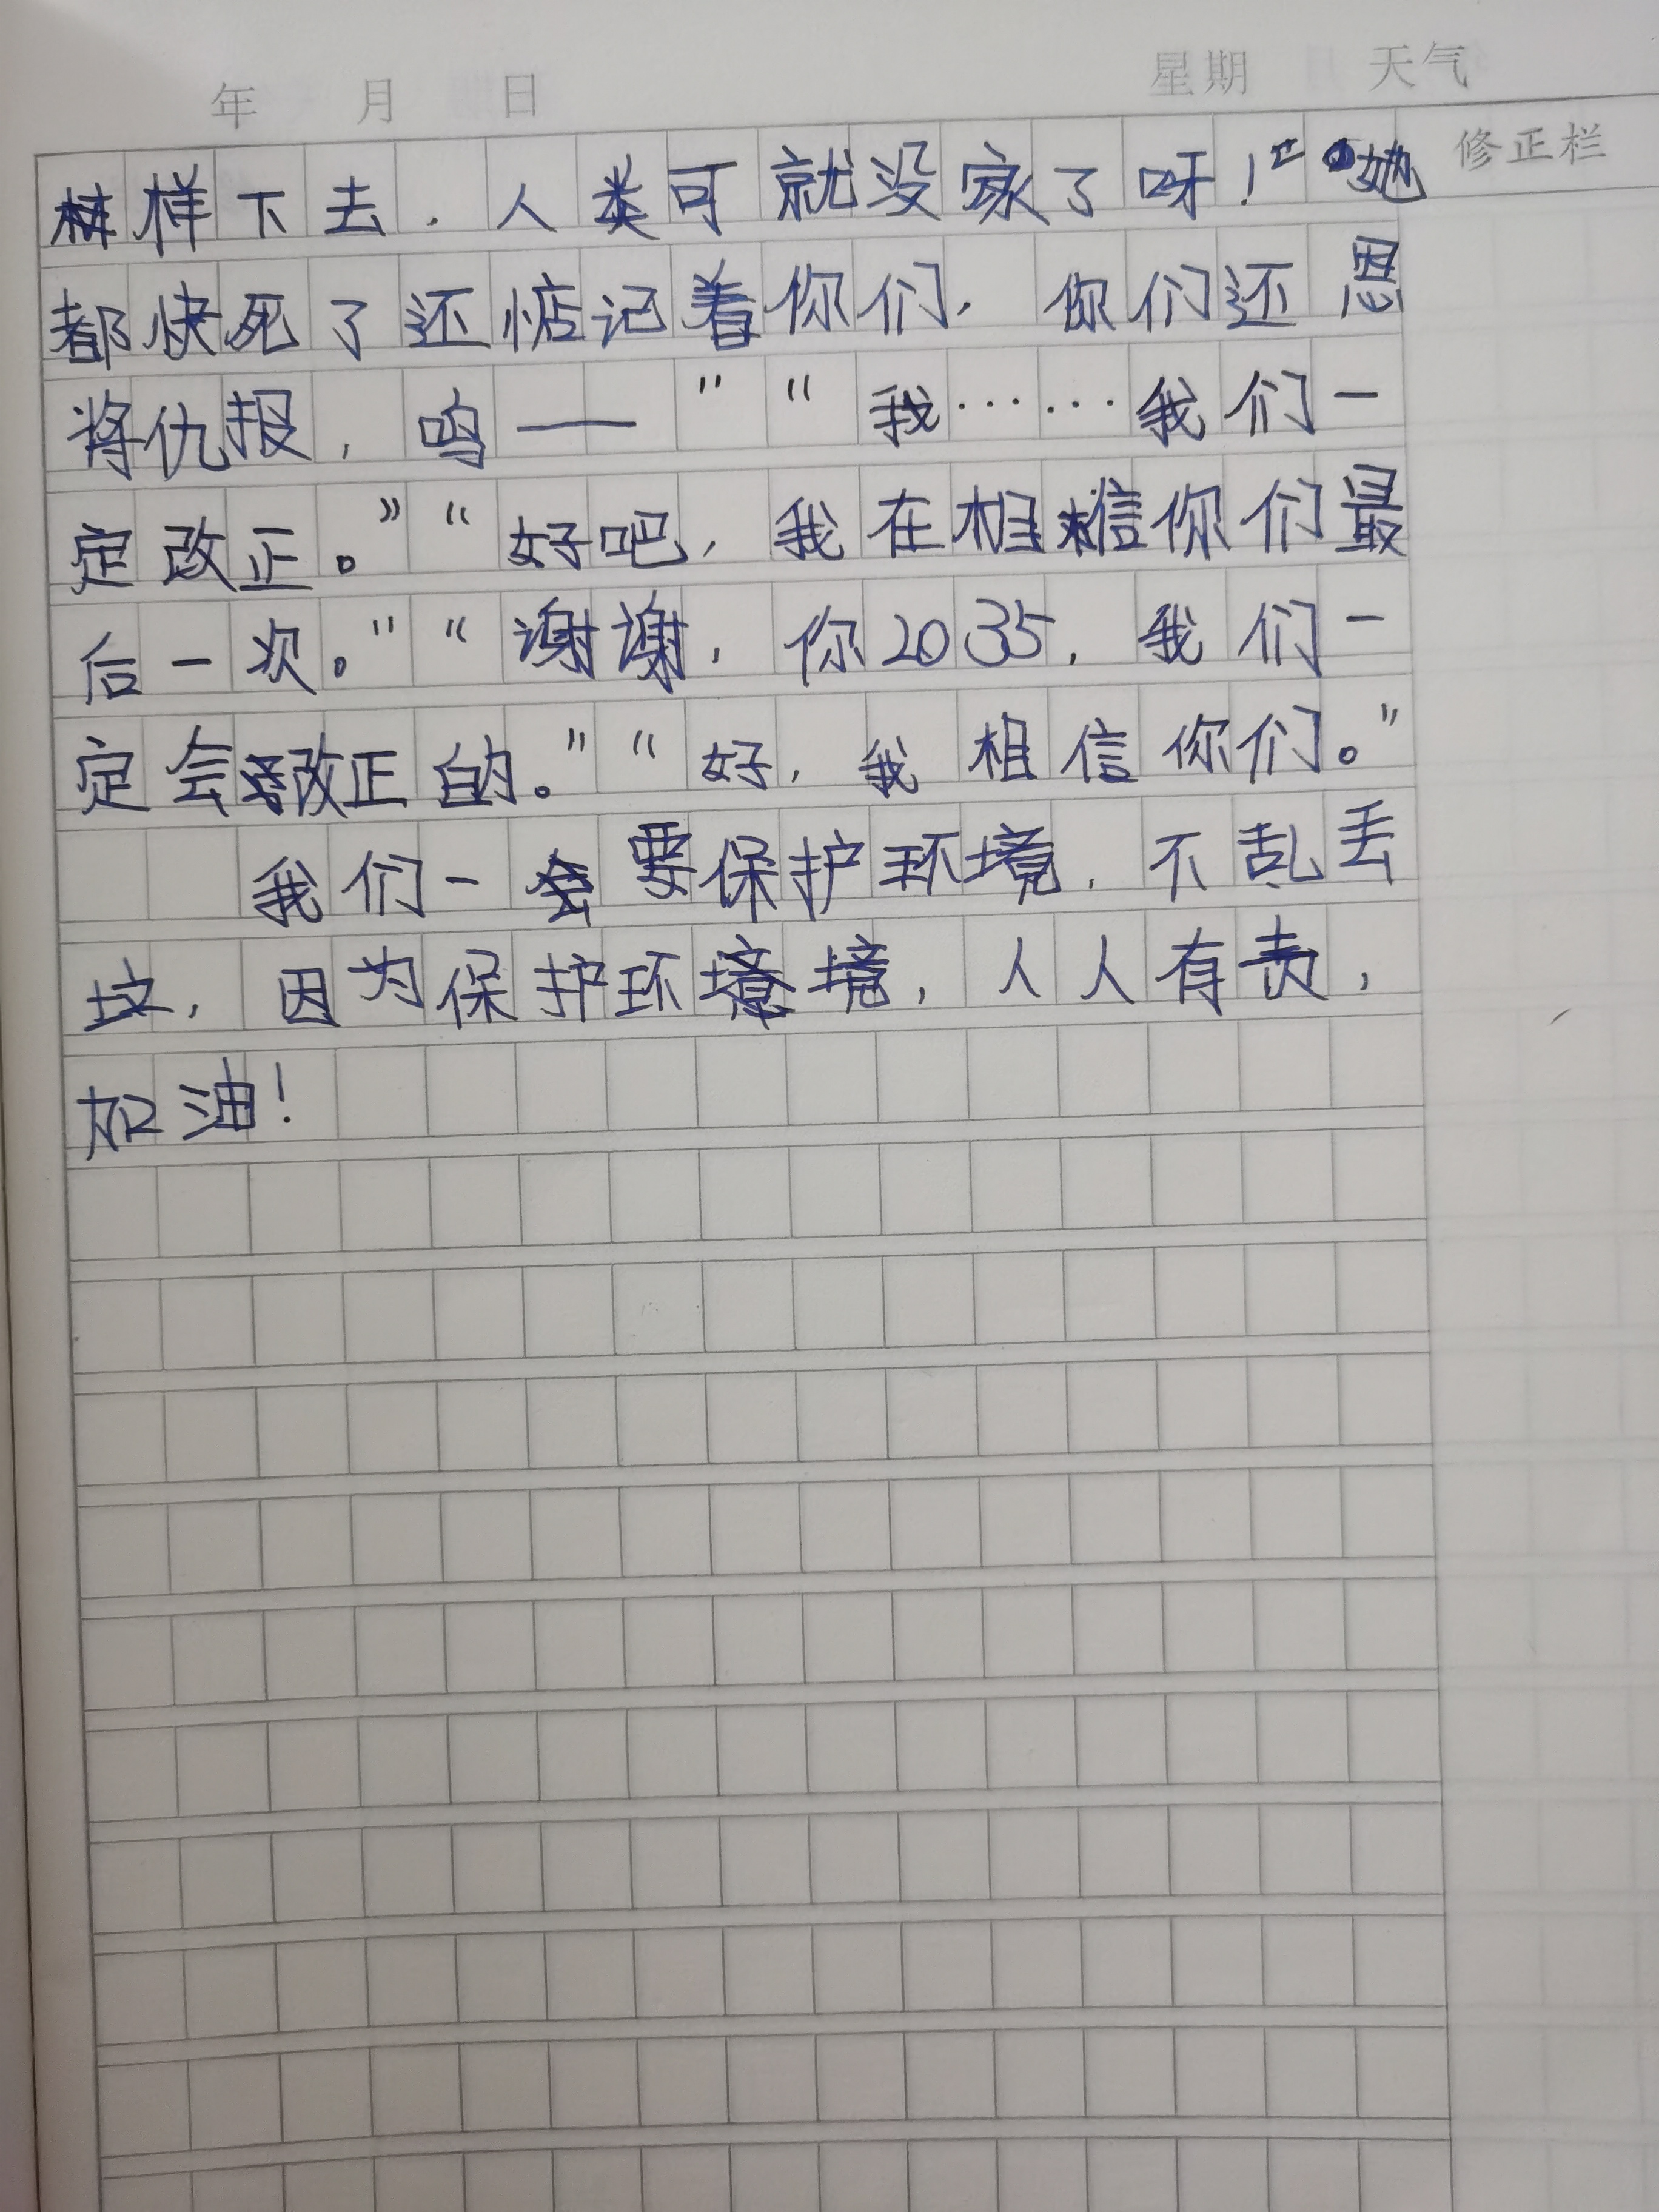 年 月 日 星期 天气
修正栏
样下去，人类可就没家了呀！”“她
都快死了还惦记着你们，你们还恩
将仇报，呜——”“我……我们一
定改正。”“好吧，我在相信你们最
后一次。”“谢谢，你2035，我们一
定会改正的。”“好，我相信你们。”
我们一会要保护环境，不乱丢
垃，因为保护环境，人人有责，
加油！